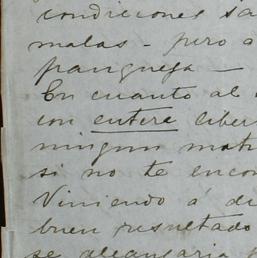 condiciones sa
malas - pero a
franqueza -
En cuanto al
con entera liber
ningun mot
si no te encon
Viniendo á di
buen resultado
se alcanzaria